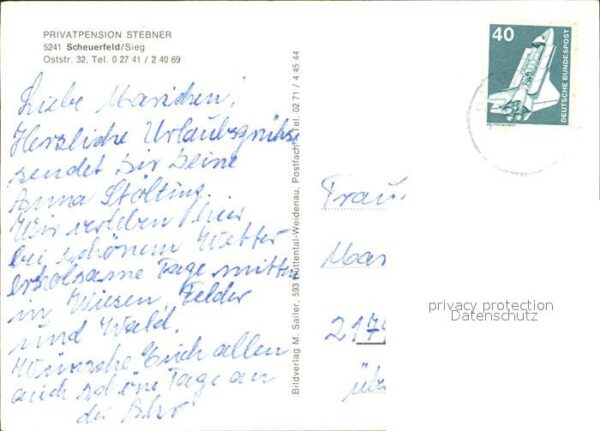 PRIVATPENSION STEBNER
5241 Scheuerfeld/Sieg
Oststr. 32, Tel. 0 27 41 / 2 40 69
Liebe Marichen!
Herzliche Urlaubsgrüße
sendet dir deine
Anna Stölting.
Wir verleben hier
bei schönem Wetter
erholsame Tage mitten
in Wiesen, Felder
und Wald.
Wünsche Euch allen
auch schöne Tage an
der Ahr
Bildverlag M. Sailer, 593 Hüttental-Weidenau, Postfach, Tel. 02 71 / 4 45 44
40
DEUTSCHE BUNDESPOST
Frau
Mar
217
üb
privacy protection
Datenschutz